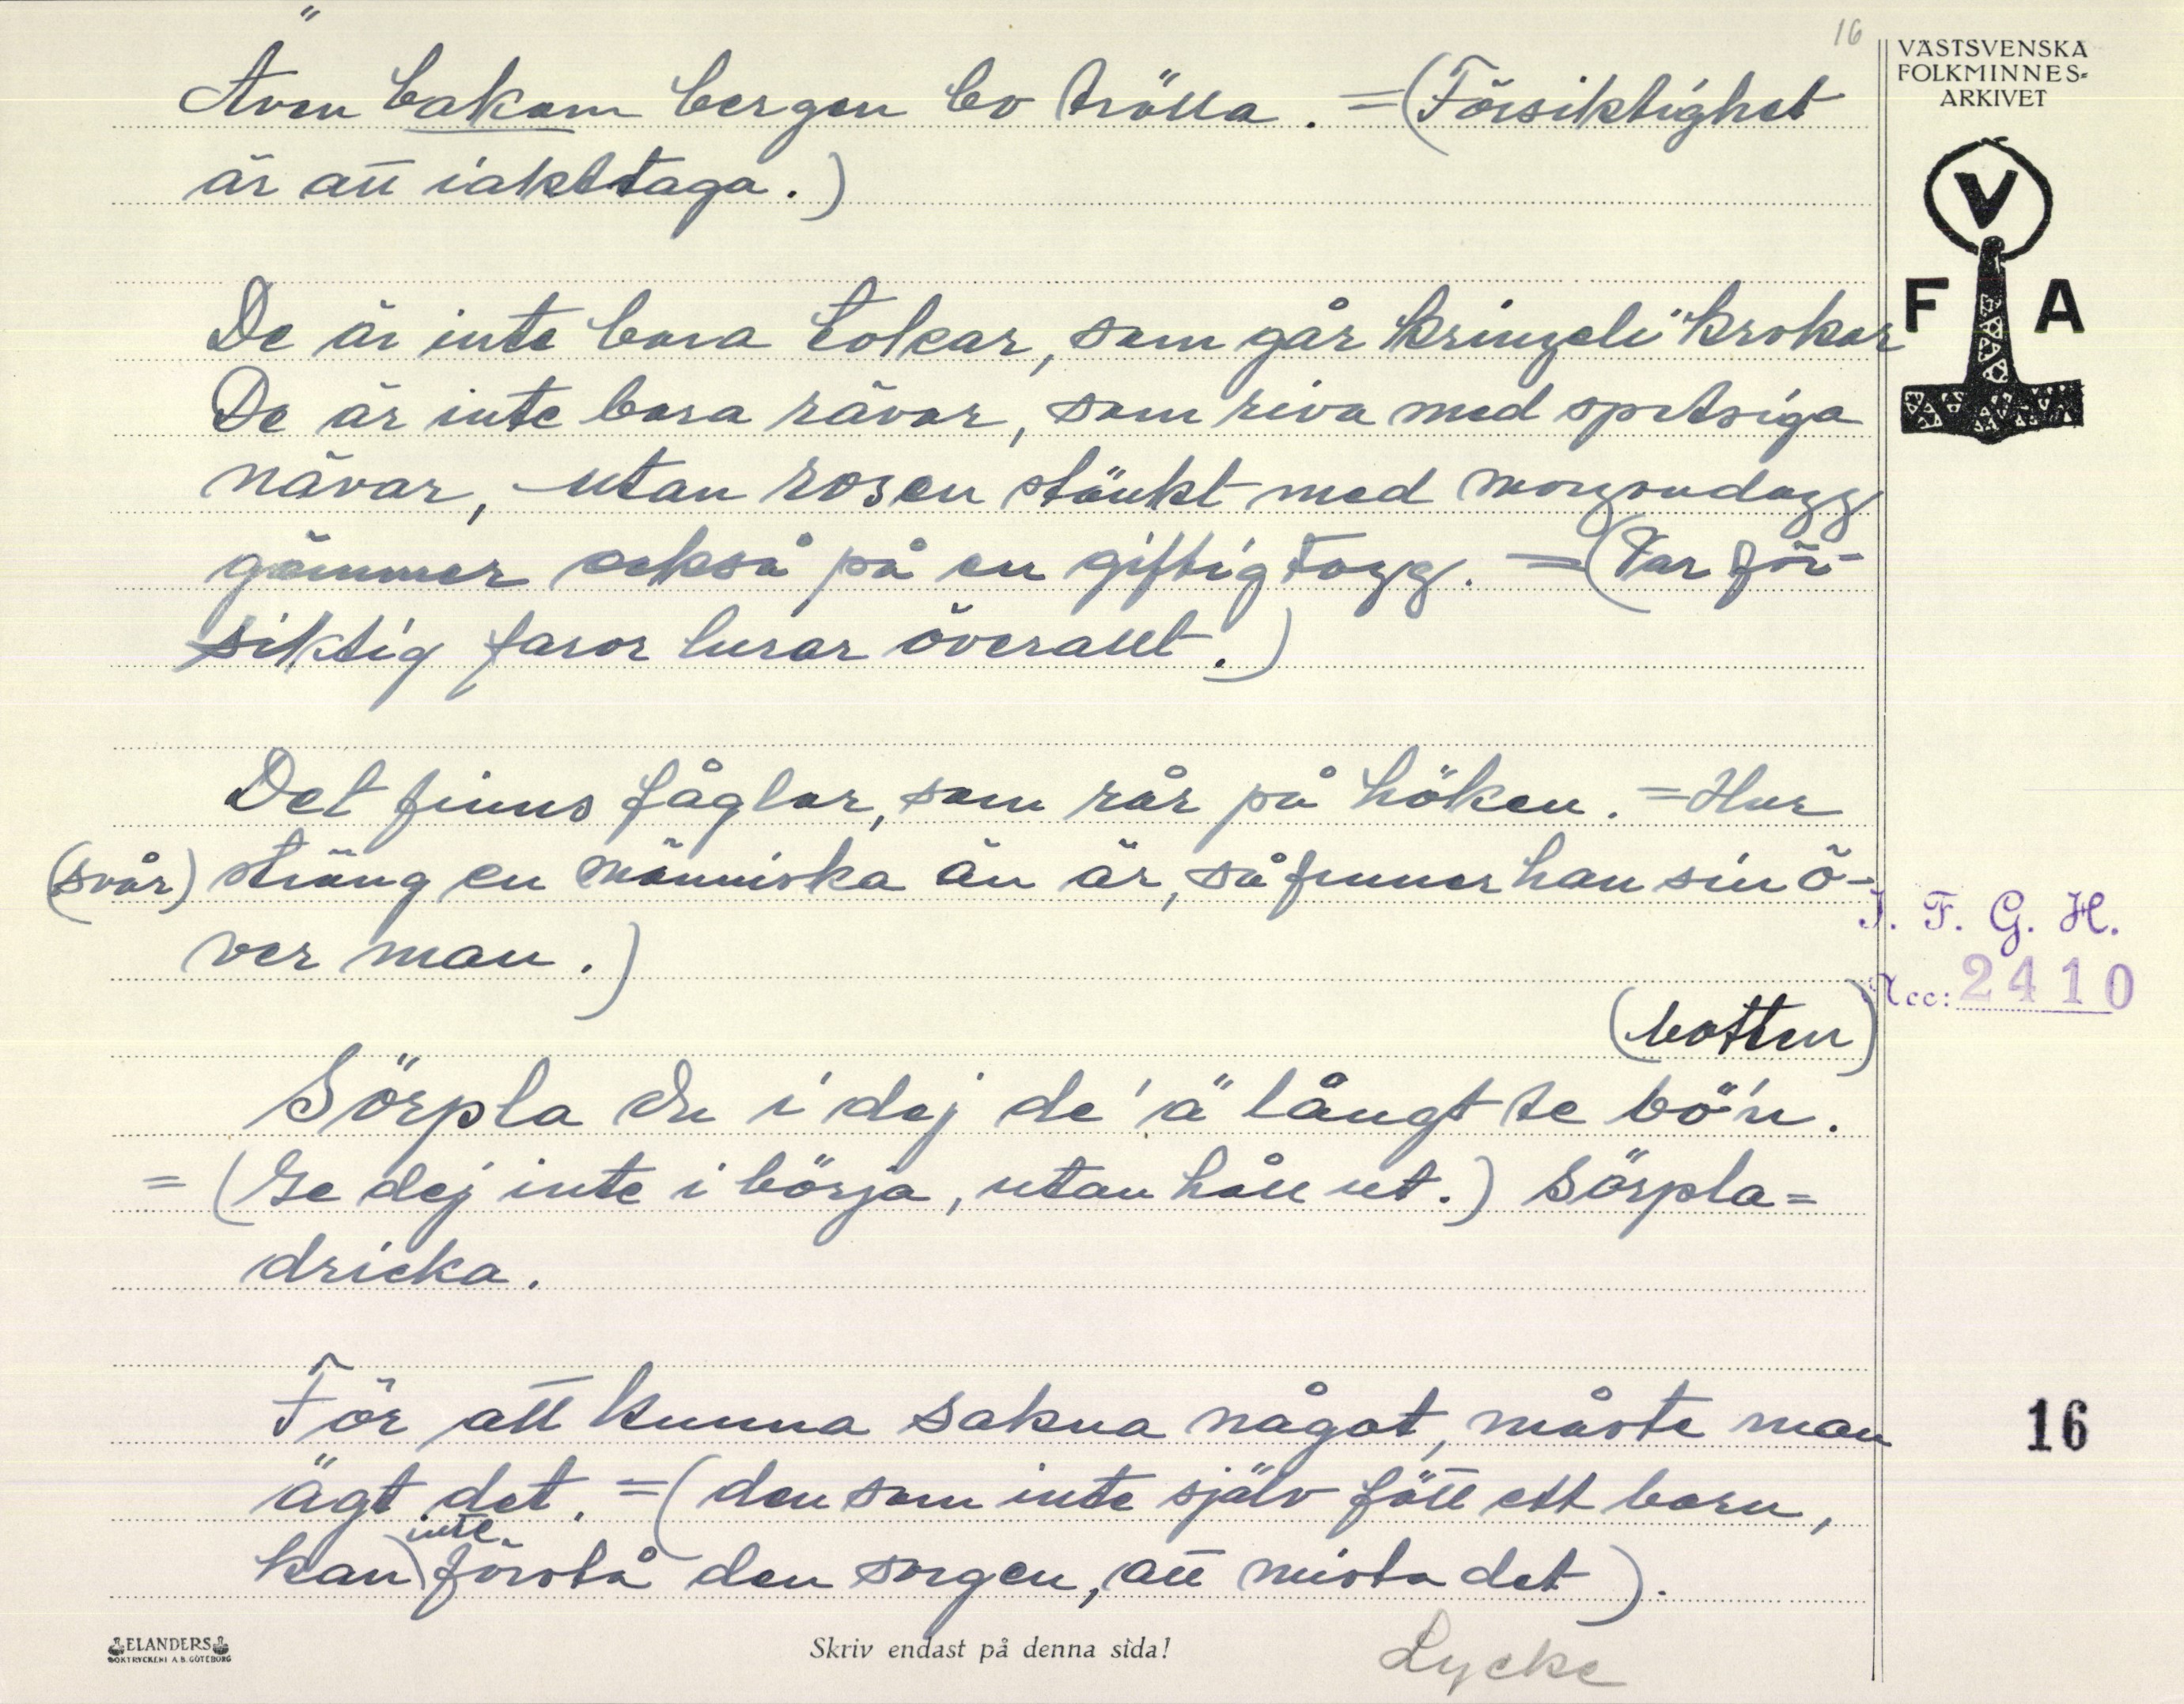 16
VÄSTSVENSKA
FOLKMINNES-
ARKIVET
V
F A
Även bakom bergen bo trölla. =(Försiktighet
är att iakttaga.)
De är inte bara tokar, som går kringeli krokar
De är inte bara rävar, som riva med spetsiga
nävar, -utan rosen stänkt med morgondagg
gömmer också på en giftig tagg. =(Var för-
siktig faror lurar överallt.)
Det finns fåglar, som rår på höken. =Hur
(svår) sträng en människa än är, så finner han sin ö-
ver man.)
J. F. G. H.
Acc: 2410
(botten)
Sörpla du i dej de' ä långt te bö'n.
= (Ge dej inte i börja, utan håll ut.) Sörpla=
dricka.
För att kunna sakna något, måste man
16
ägt det. =(den som inte själv fått ett barn,
kan inte förstå den sorgen, att mista det).
ELANDERS
BOKTRYCKERI A.B. GÖTEBORG
Skriv endast på denna sida!
Lycke